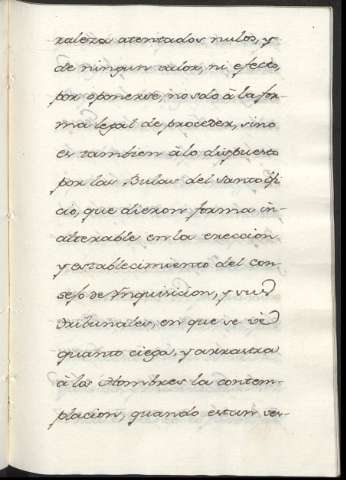 raleza atentados nulos, y
de ningun valor, ni efecto,
por oponerse, no solo à la for-
ma legal de proceder, sino
es tambien à lo dispuesto
por las Bulas del Santo Ofi
cio, que dieron forma in-
alterable en la ereccion
y establecimiento del Con
sejo de Ynquisicion, y sus
Tribunales, en que se vè
quanto ciega, y arrastra
à los Hombres la contem-
placion, quando estan ver-